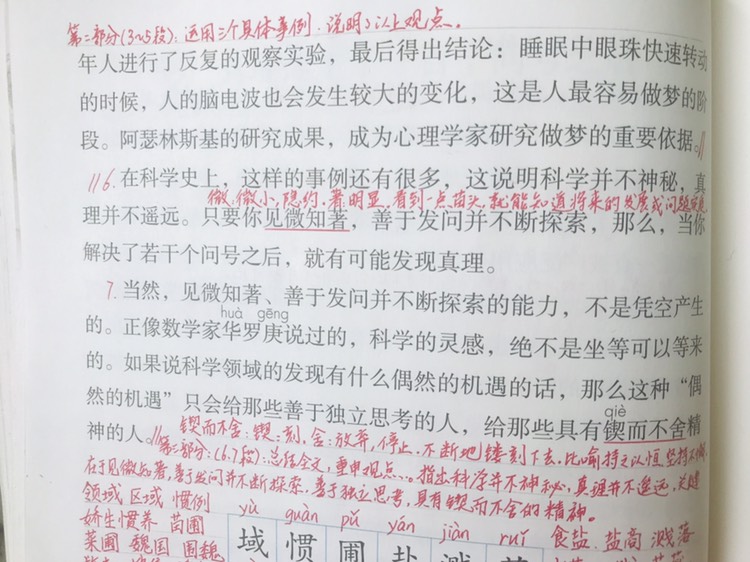 第二部分(3~5段)：运用三个具体事例，说明了以上观点。
年人进行了反复的观察实验，最后得出结论：睡眠中眼珠快速转动
的时候，人的脑电波也会发生较大的变化，这是人最容易做梦的阶
段。阿瑟林斯基的研究成果，成为心理学家研究做梦的重要依据。//
//6.在科学史上，这样的事例还有很多，这说明科学并不神秘，真
微：微小，隐约。著：明显。看到一点苗头，就能知道将来的发展或问题
理并不遥远。只要你见微知著，善于发问并不断探索，那么，当你
解决了若干个问号之后，就有可能发现真理。
7.当然，见微知著、善于发问并不断探索的能力，不是凭空产生
huà gēng
的。正像数学家华罗庚说过的，科学的灵感，绝不是坐等可以等来
的。如果说科学领域的发现有什么偶然的机遇的话，那么这种“偶
然的机遇”只会给那些善于独立思考的人，给那些具有锲而不舍精
qiè
神的人。//
锲而不舍：锲：刻，舍：放弃，停止。不断地镂刻下去，比喻持之以恒，坚持不懈
第三部分：(6.7段)：总结全文，重申观点。指出科学并不神秘，真理并不遥远，关键
在于见微知著，善于发问并不断探索，善于独立思考，具有锲而不舍的精神。
领域 区域 惯例
yù guàn pǔ yán jiàn ruǐ
娇生惯养 苗圃
食盐 盐商 溅落
菜圃 魏国 围魏
域 惯 圃 盐 溅